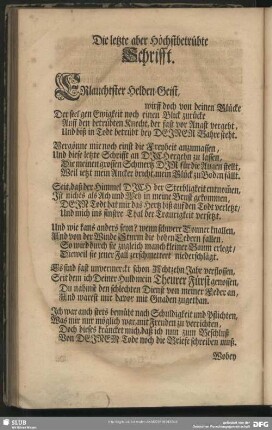 Die letzte aber Höchstbetrübte
Schrifft.
ERlauchtster Helden Geist.
wirff doch von deinen Blücke
Der seel'gen Ewigkeit noch einen Blick zurücke
Auff den betrübten Knecht, der fast vor Angst vergeht,
Und biß in Todt betrübt bey DEINER Bahre steht.
Vergönne mir noch einst die Freyheit anzumassen,
Und diese letzte Schrifft an DICH ergehn zu lassen,
Die meinen grossen Schmertz DIR für die Augen stellt,
Weil jetzt mein Ancker bricht, mein Glück zu Boden fällt.
Seit daß der Himmel DICH der Sterbligkeit entwöhnen,
Ist nichts als Ach und Weh in meine Brust gekommen,
DEIN Todt hat mir das Hertz biß auf den Todt verletzt,
Und mich ins finstre Thal der Traurigkeit versetzt.
Und wie kans anders seyn? wenn schwere Donner knallen,
Und von der Winde Sturm die hohen Cedern fallen,
So wird durch sie zugleich manch kleiner Baum erlegt,
Dieweil sie jener Fall zerschmettert niederschlägt.
Es sind fast unvermerckt schon Achtzehn Jahr verflossen,
Seit dem ich Deiner Huld mein Theurer Fürst genossen,
Du nahmst den schlechten Dienst von meiner Feder an,
Und warest mir davor mit Gnaden zugethan.
Ich war auch stets bemüht nach Schuldigkeit und Pflichten,
Was mir nur möglich war, mit Freuden zu verrichten,
Doch dieses kräncket mich, daß ich nun zum Beschluß
Von DEINEM Tode noch die Briefe schreiben muß.
Wobey